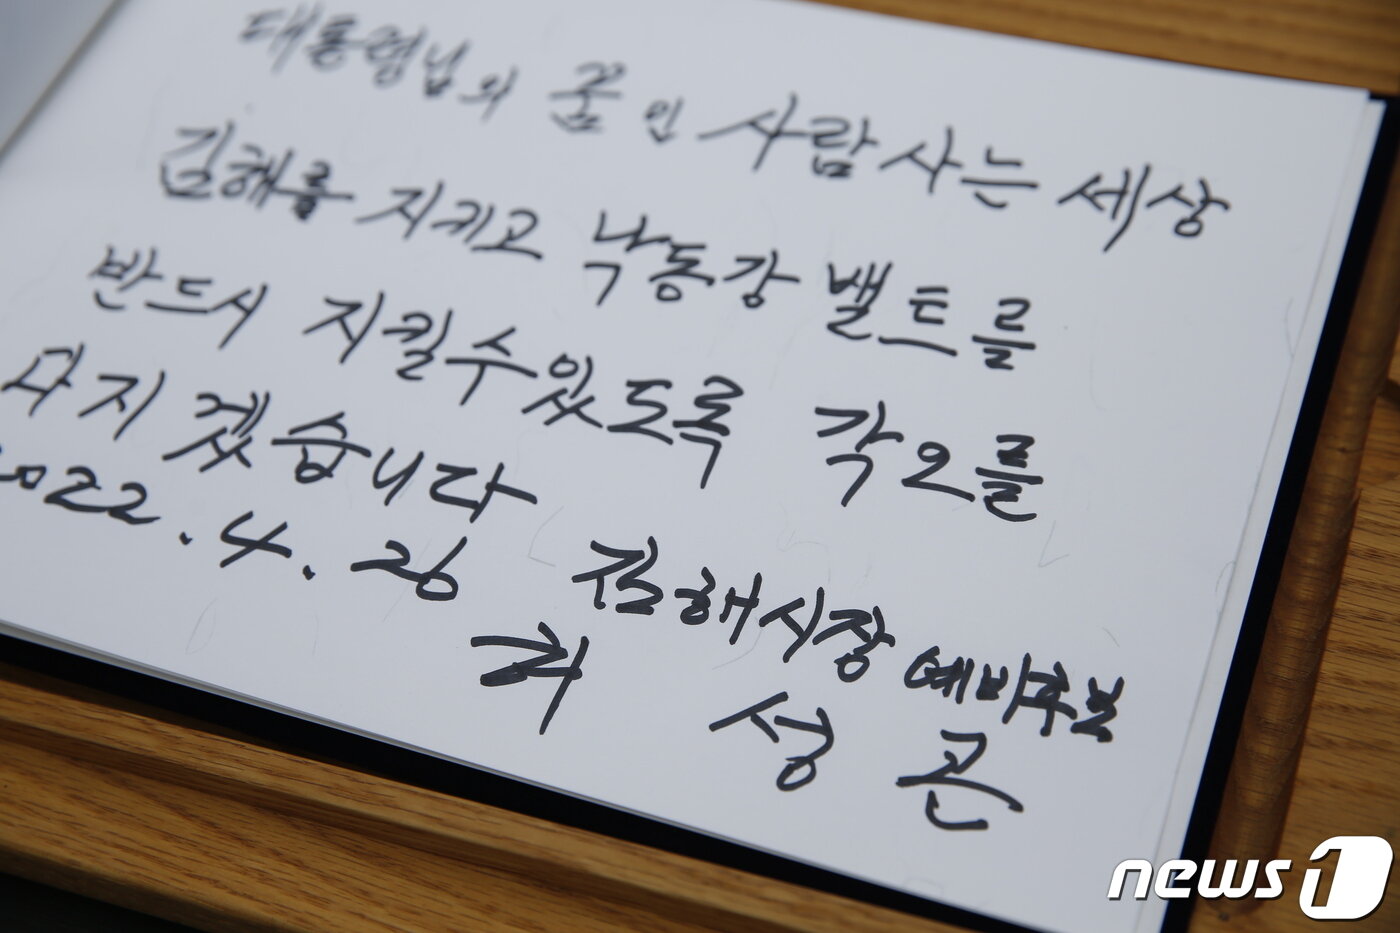 대통령님의 꿈인 사람사는 세상
김해를 지키고 낙동강 밸트를
반드시 지킬수있도록 각오를
다지겠습니다
2022.4.26 김해시장 예비후보
허성곤
news1